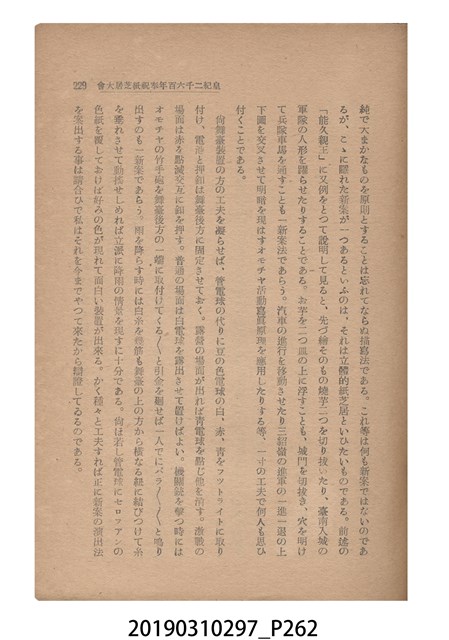 皇紀二千六百年奉祝紙芝居大會
229
純で大まかなものを原則とすることは忘れてならぬ描寫法である。これ等は何も新案ではないのであ
るが、こゝに隱れた新案が一つあるといふのは、それは立體的紙芝居といひたいものである。前述の
「能久親王」に又例をとつて説明して見ると、先づ繪そのもの燒芋二つを切り拔いたり、臺南入城の
軍隊の人形を躍らせたりすることである。お芋を二つ皿の上に浮すことも、城門を切拔き、穴を明け
て兵隊車馬を通すことも一新案法であらう。汽車の進行を移動させたり三貂嶺の進軍の一進一退の上
下圖を交叉させて明暗を現はすオモチヤ活動寫眞原理を應用したりする等、一寸の工夫で何人も思ひ
付くことである。
尙舞臺裝置の方の工夫を凝らせば、管電球の代りに豆の色電球の白、赤、靑をフツトライトに取り
付け、電池と押釦は舞臺後方に固定させておく。露營の場面が出れば靑電球を點じ他を消す。激戰の
場面は赤を點滅交互に釦を押す。普通の場面は白電球を露出させて置けばよい。機關銃を擊つ時には
オモチヤの竹手砲を舞臺後方の一端に取付けてくる〱と引金を廻せば一人でにバラ〱〱と鳴り
出すのも一新案であらう。雨を降らす時には白糸を幾筋も舞臺の上の方から橫なる紐に結びつけて糸
を垂れさせて動搖せしめれば立派に降雨の情景を現すに十分である。尙ほ若し管電球にセロフアンの
色紙を覆しておけば好みの色が現れて面白い裝置が出來る。かく種々と工夫すれば正に新案の演出法
を案出する事は請合ひで私はそれを今までやつて來たから辯證してゐるのである。
20190310297_P262